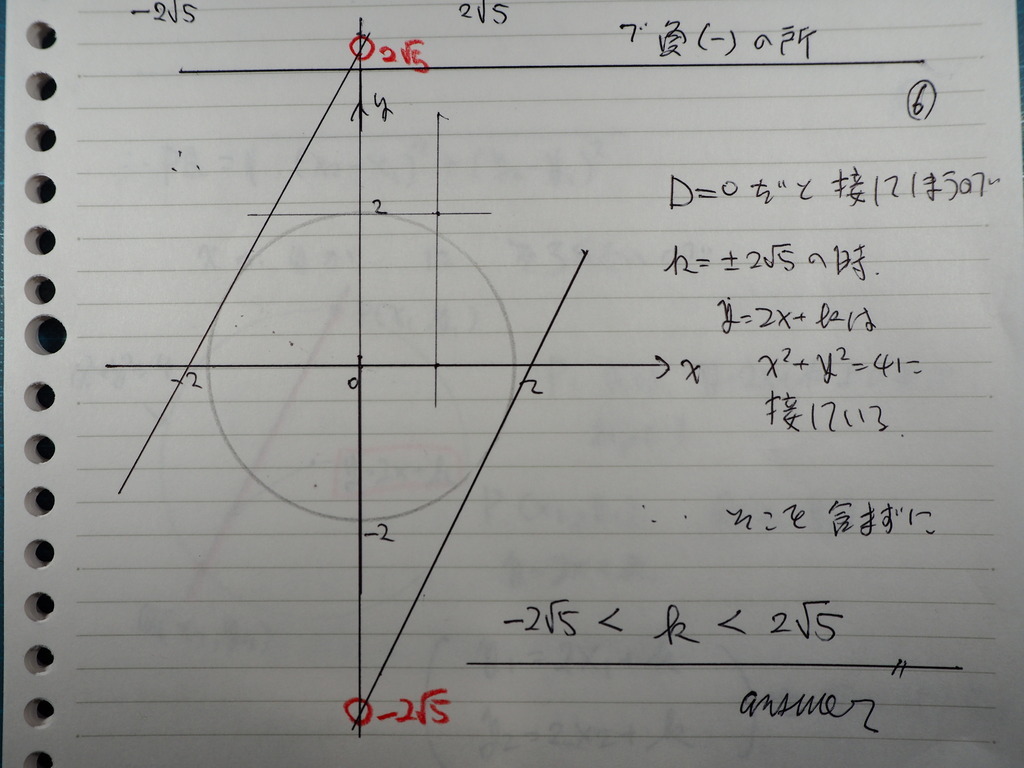 -2√5 2√5
で 負(-)の所
2√5
⑥
y
∴
D=0だと 接してしまうので
2
k=±2√5の時.
y=2x+kは
-2 0 2 x
x²+y²=4に
接している.
-2
∴ そこを含まずに
-2√5 < k < 2√5
-2√5
answer